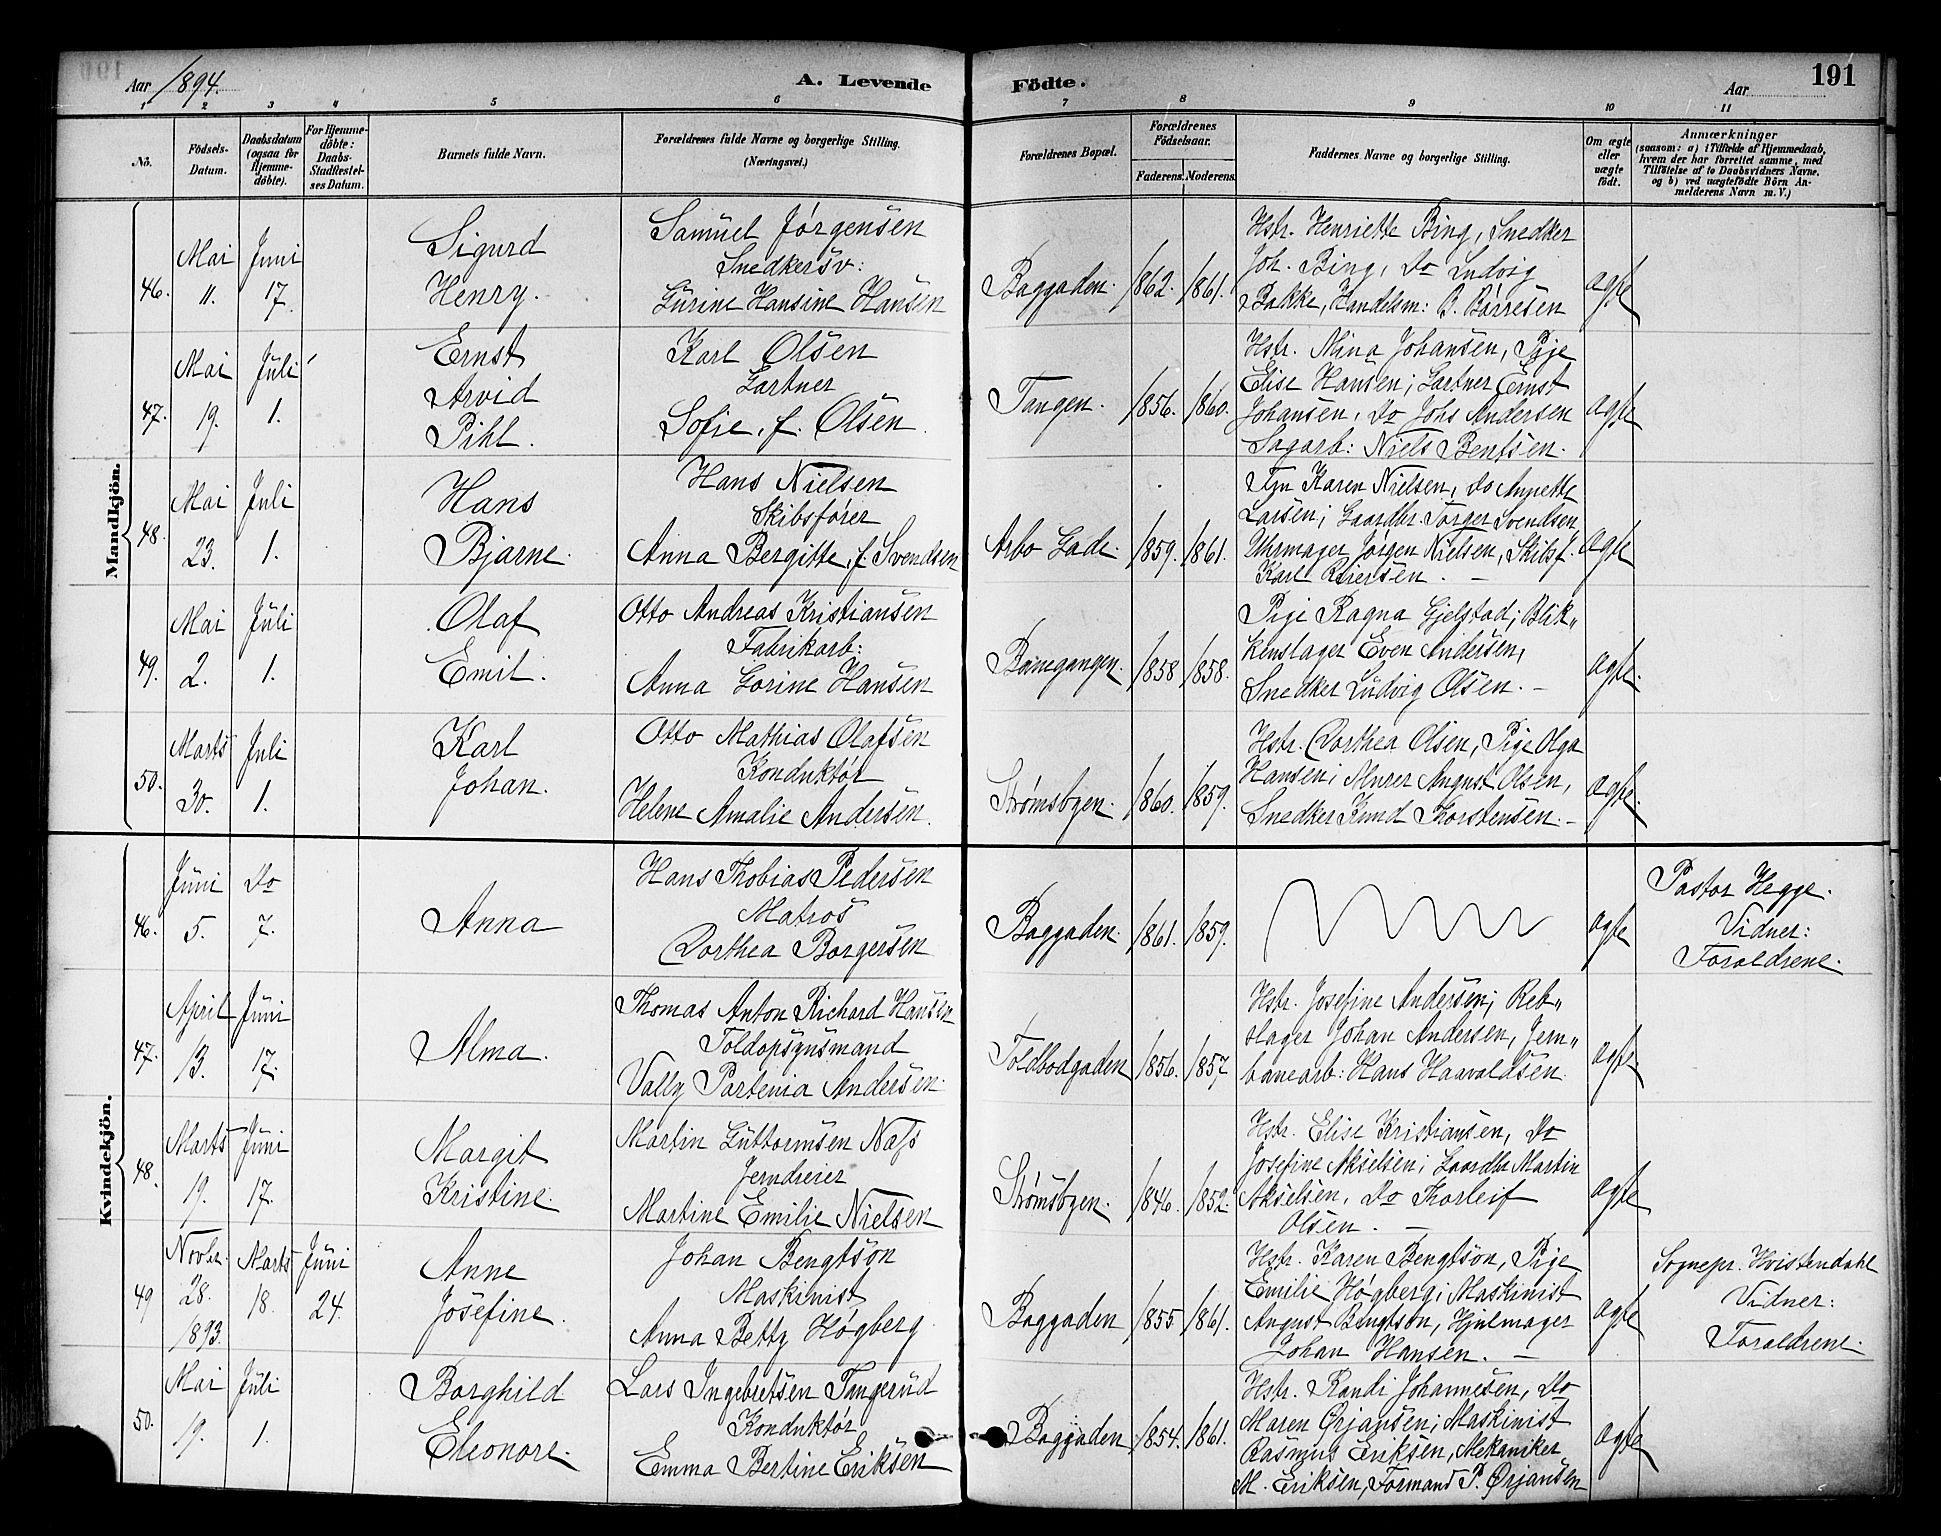 Aar 1894.
A. Levende Födte.
Aar
191
1 2 3 4 5 6 7 8 9 10 11
No.
Födsels-Datum.
Daabsdatum (ogsaa for Hjemme-döbte).
For Hjemme-döbte: Daabs-Stadfæstel-ses Datum.
Barnets fulde Navn.
Forældrenes fulde Navne og borgerlige Stilling. (Næringsvei.)
Forældrenes Bopæl.
Forældrenes Födselsaar.
Faderens. Moderens.
Faddernes Navne og borgerlige Stilling.
Om ægte eller uægte født.
Anmærkninger
(saasom: a) i Tilfælde af Hjemmedaab,
hvem der har forrettet samme, med
Tilföielse af to Daabsvidners Navne,
og b) ved uægtefödte Börn An-
melderens Navn m. V.)
Mandkjön.
46.
Mai 11.
Juni 17.
Sigurd
Henry.
Samuel Jørgensen
Snedkersv:
Gurine Hansine Hansen
Baggaden.
1862.
1861.
Hstr. Henriette Bing, Snedker
Joh. Bing, Do Ludvig
Bakke, Handelsm: B. Børresen
ægte
47.
Mai 19.
Juli 1.
Ernst
Arvid
Pihl.
Karl Olsen
Gartner
Sofie, f. Olsen.
Tangen.
1856.
1860.
Hstr. Mina Johansen, Pige
Elise Hansen; Gartner Ernst
Johansen, Do Johs Andersen
Sagarb: Niels Bentsen.
ægte
48.
Mai 23.
Juli 1.
Hans
Bjarne.
Hans Nielsen
Skibsfører
Anna Bergitte, f. Svendsen
Arbo Gade.
1859.
1861.
Karen Nielsen, Do Annette
Larsen; Gaardbr. Torger Svendsen
Uhrmager Jørgen Nielsen, Skibsf.
Karl Reiersen. –
ægte
49.
Mai 2.
Juli 1.
Olaf
Emil.
Otto Andreas Kristiansen
Fabrikarb:
Anna Gorine Hansen
Bomegangen.
1858
1858.
Pige Ragna Gjelstad; Blik„
kenslager Even Andersen,
Snedker Ludvig Olsen. –
ægte.
50.
Marts 30.
Juli 1.
Karl
Johan.
Otto Mathias Olafsen
Konduktør
Helene Amalie Andersen.
Strømsbyen.
1860.
1859.
Hstr. Dorthea Olsen, Pige Olga
Hansen; Murer August Olsen,
Snedker Knud Thorstensen. –
ægte.
Kvindekjön.
46.
Juni 5.
Do 7.
Anna
Hans Thobias Pedersen
Matros
Dorthea Borgersen
Baggaden.
1861.
1859.
ægte
Pastor Hegge.
Vidner:
Forældrene.
47.
April 13.
Juni 17.
Alma.
Thomas Anton Richard Hansen
Toldopsynsmand
Vally Partenia Andersen.
Toldbodgaden
1856.
1857
Hstr. Josefine Andersen; Reb„
slager Johan Andersen, Jern„
banearb: Hans Haavaldsen.
ægte
48.
Marts 19.
Juni 17.
Margit
Kristine.
Martin Guttormsen Næss
Jerndreier
Martine Emilie Nielsen
Strømsbyen.
1846.
1852.
Hstr. Elise Kristiansen, Do
Josefine Akselsen; Gaardbr Martin
Akselsen, Do Thorleif
Olsen. –
ægte
49
Novbr. 28. 1893.
Marts 18.
Juni 24.
Anne
Josefine.
Johan Bengtson
Maskinist
Anna Betty Høgberg.
Baggaden
1855
1861.
Hstr. Karen Bengtson, Pige
Emilie Høgberg; Maskinist
August Bengtson, Hjulmager
Johan Hansen. –
ægte
Sognepr. Hvistendahl
Vidner:
Forældrene.
50.
Mai 19.
Juli 1.
Borghild
Eleonore.
Lars Ingebretsen Tangerud
Konduktør
Emma Bertine Eriksen
Baggaden
1854.
1861.
Hstr. Randi Johannesen, Do
Maren Ørjansen; Maskinist
Rasmus Eriksen, Mekaniker
M. Eriksen, Formand P. Ørjansen
ægte